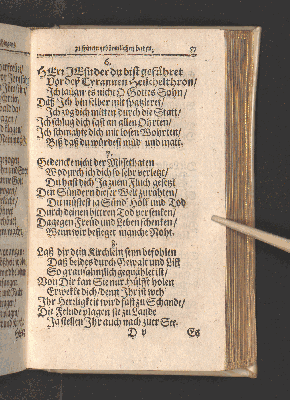 57
6.
HErr JEsu der du bist geführet
Vor der Tyrannen Richtelthron/
Ich laugne es nicht O Gottes Sohn/
Daß Ich bin selber mit spatzieret/
Ich zog dich mitten durch die Statt/
Ich schlug dich fast an allen Ohrten/
Ich schmähte dich mit losen Wohrten/
Biß daß du würdest müd und matt.
7.
Gedenck nicht der Missethaten
Wodurch ich dich so sehr verletzt/
Du hast dich Ja zum Fluch gesetzt
Den Sündern dieser Welt zurahten/
Du müstest Ja Sünd Höll und Tod
Durch deinen bittren Tod versenken/
Dagegen Freud und Leben schenken/
Wenn wir besieget manche Noht.
8.
Laß dir dein Kirchlein seyn befohlen
Daß beides durch Gewalt und List
So
Von Dir kan Sie nur Hülff holen
Erwekke dich/ denn Ihr ist weh
Ihr Herligkeit wird fast zu Schande/
Die Feinde plagen sie zu Lande
Ja stellen Ihr auch nach zuer See.
D v
Es